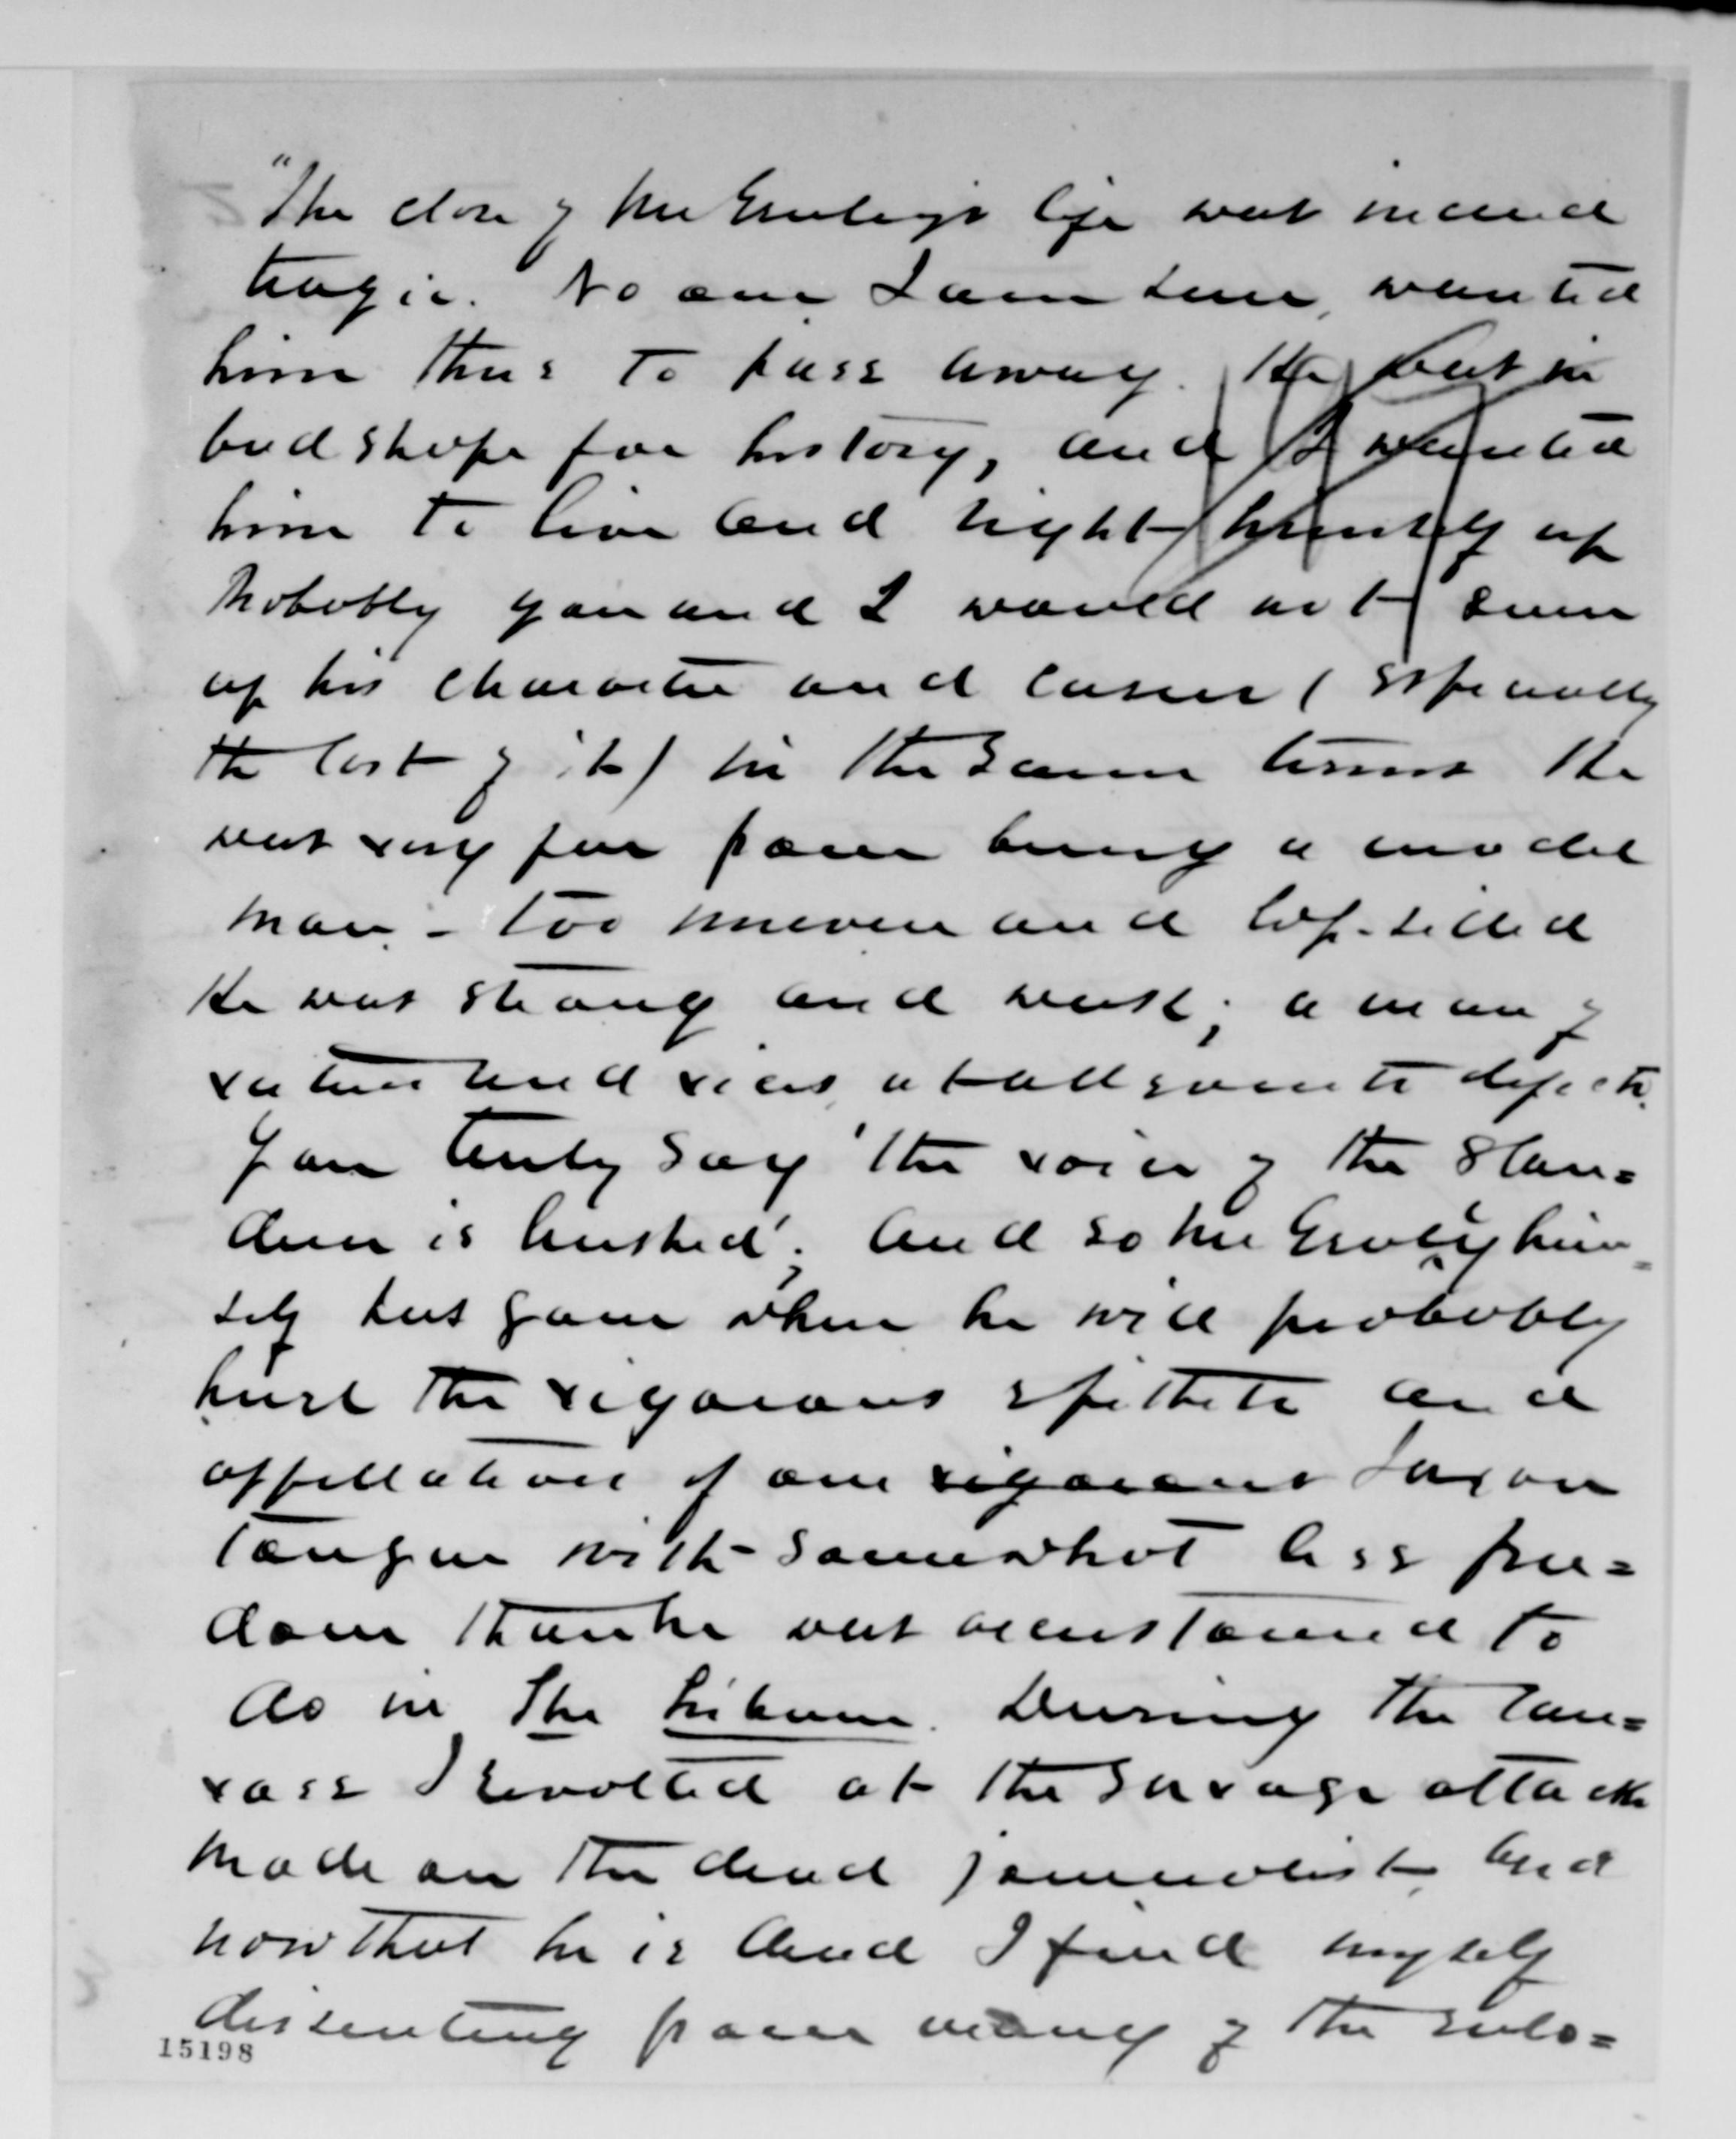 "The close of Mr Greeley's life was indeed
tragic. No one I am sure, wanted
him thus to pass away. He was in
bad shape for history, and I wanted
him to live and right himself up
Probably you and I would not sum
up his character and career (especially
the last of it) in the same terms He
was very far from being a model
man - too uneven and lop-sided
He was strong and weak; a man of
virtues and vices, at all events defects.
You truly say 'the voice of the slan=
derer is hushed'; and so Mr Greeley him=
self has gone where he will probably
hurl the vigorous epithets and
appellations of our vigorous Saxon
tongue with somewhat less free=
dom than he was accustomed to
do in The Tribune. During the can=
vass I revolted at the savage attacks
made on the dead journalist, and
now that he is dead I find myself
dissenting from many of the eulo=
15198